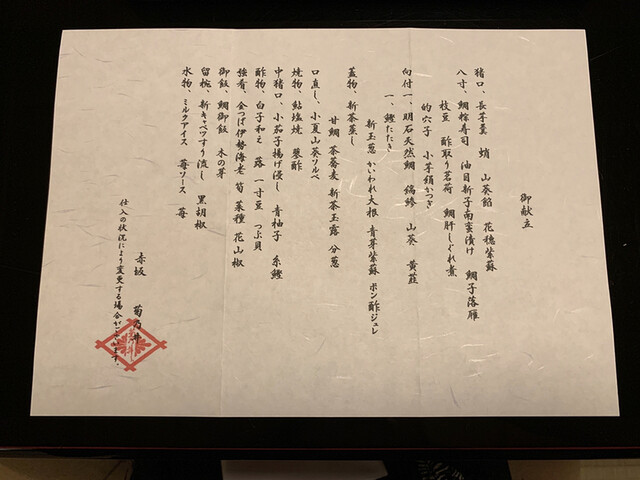 御献立
猪口、長芋羹 蛸 山葵餡 花穂紫蘇
八寸、鯛粽寿司 油目新子南蛮漬け 鯛子落雁
枝豆 酢取り茗荷 鯛肝しぐれ煮
的穴子 小芋絹かつぎ
向付一、明石天然鯛 縞鯵 山葵 黄韮
一、鰹たたき
新玉葱 かいわれ大根 青芽紫蘇 ポン酢ジュレ
蓋物、新茶蒸し
甘鯛 茶蕎麦 新茶玉露 分葱
口直し、小夏山葵ソルベ
焼物、鮎塩焼 蓼酢
中猪口、小茄子揚げ浸し 青柚子 糸鰹
酢物、白子和え 蕗 一寸豆 つぶ貝
強肴、金つば伊勢海老 筍 菜種 花山椒
御飯、鯛御飯 木の芽
留椀、新キャベツすり流し 黒胡椒
水物、ミルクアイス 苺ソース 苺
赤坂 菊乃井
仕入の状況により変更する場合がございます。